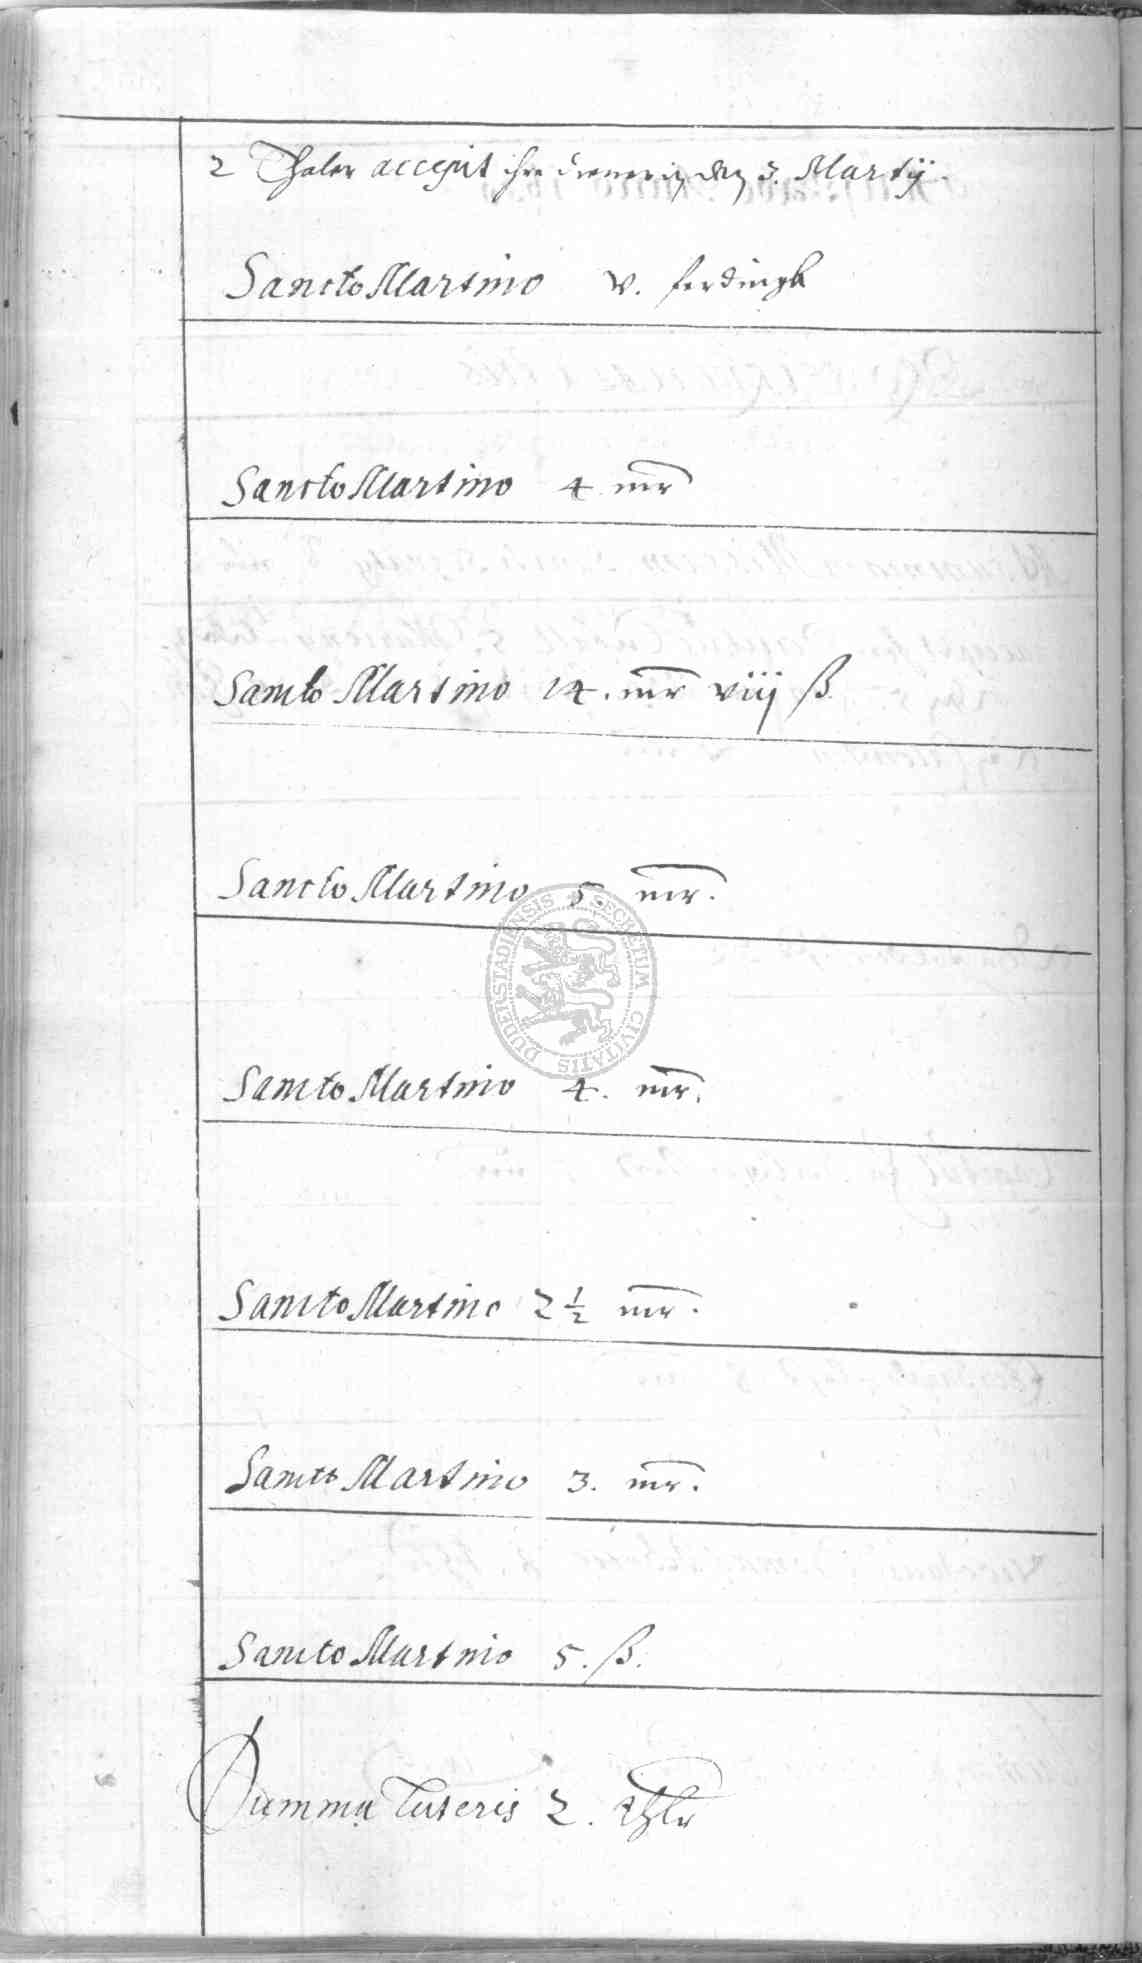 2 Thaler accepit ihre den 3. Martij.
Sancto Martino v. ferdingk
Sancto Martino 4 mr
Sancto Martino 14. mr viij ß
Sancto Martino 5. mr.
Sancto Martino 4. mr.
Sancto Martino 2 1/2 mr.
Sancto Martino 3. mr.
Sancto Martino 5. ß.
Summa Lateris 2. thlr
SECRETUM CIVITATIS DUDERSTADIENSIS